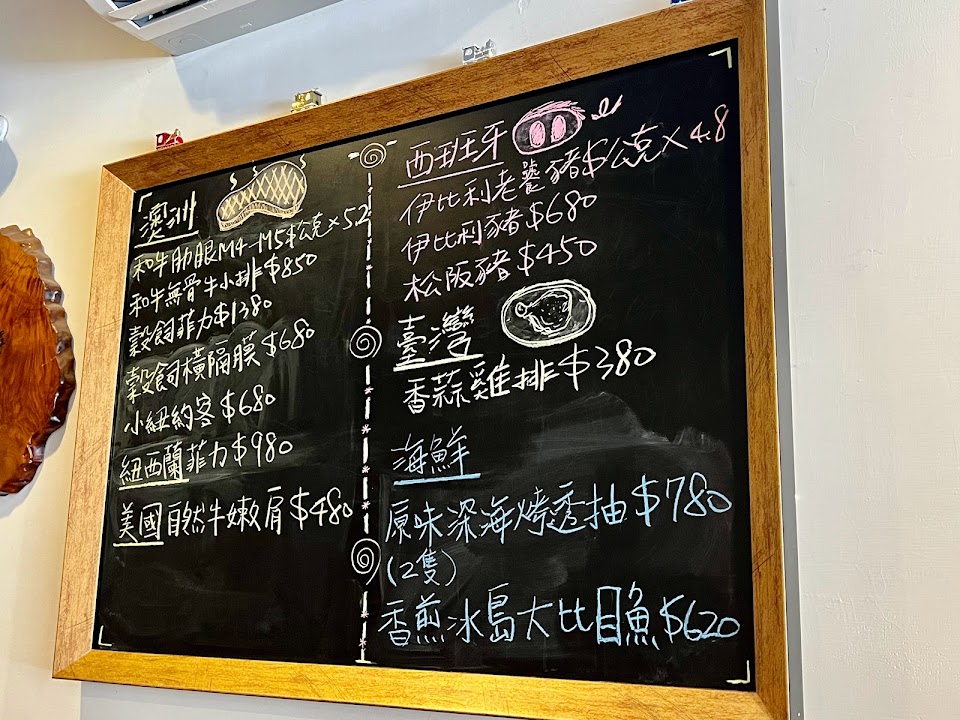 澳洲
和牛肋眼M4-M5$公克×5.2
和牛無骨牛小排$850
穀飼菲力$1380
穀飼橫隔膜$680
小紐約客$680
紐西蘭菲力$980
美國自然牛嫩肩$480
西班牙
伊比利老饕豬$公克×4.8
伊比利豬$680
松阪豬$450
臺灣
香蒜雞排$380
海鮮
原味深海烤透抽$780
(2隻)
香煎冰島大比目魚$620